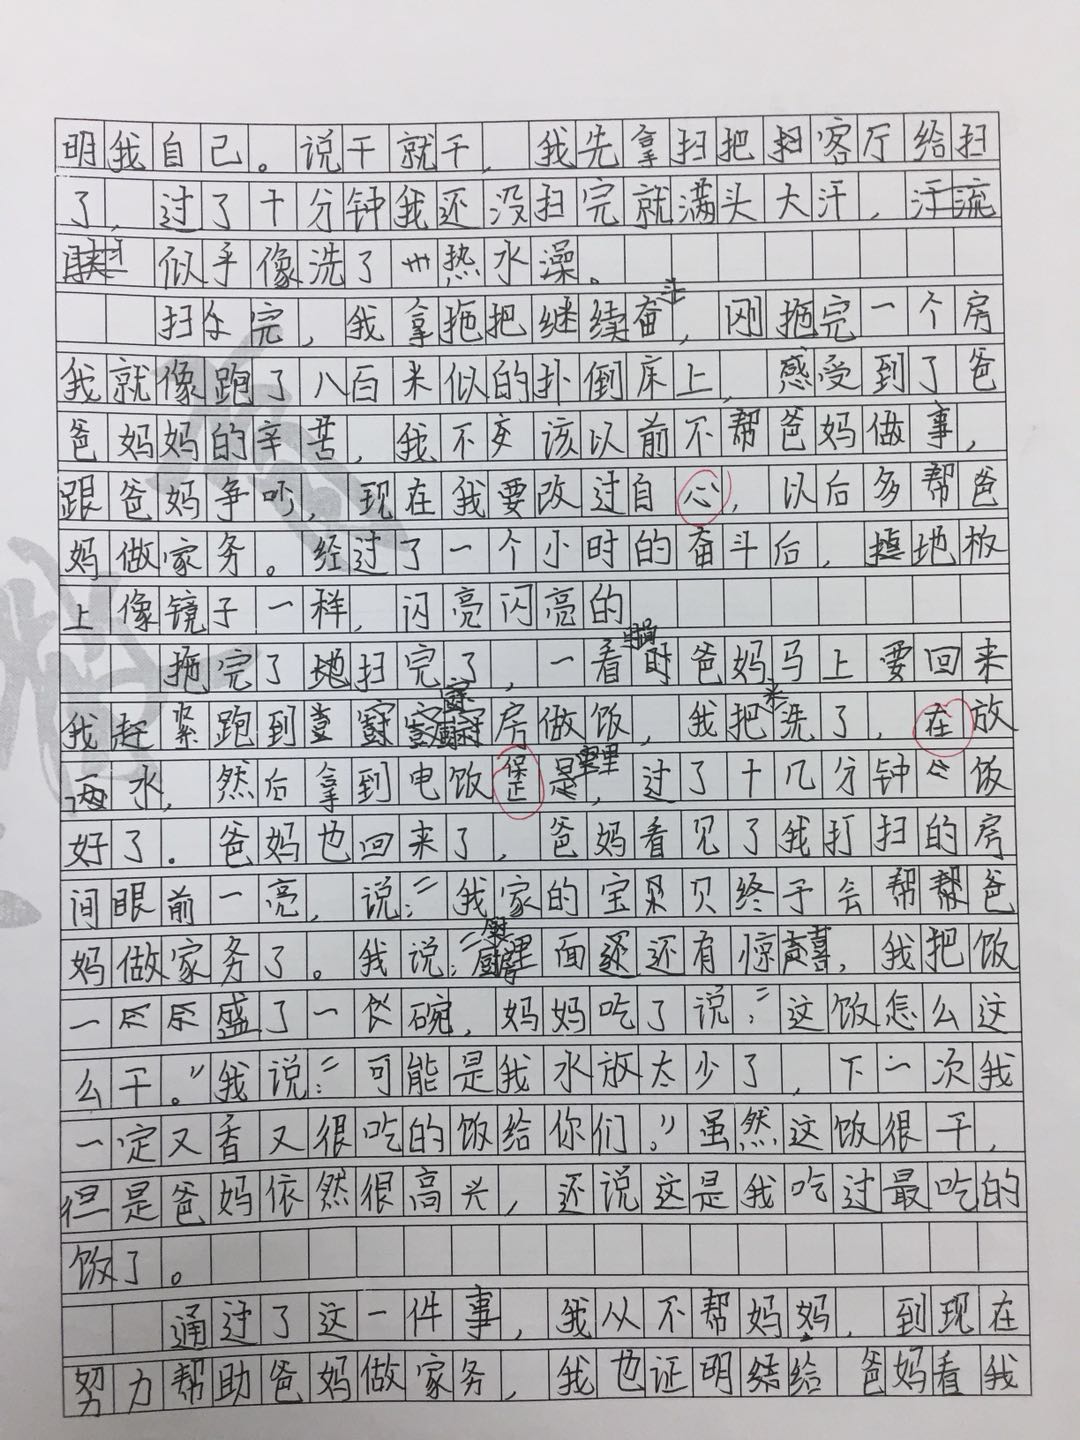 明我自己。说干就干，我先拿扫把客厅给扫
了，过了十分钟我还没扫完就满头大汗，
似乎像洗了热水澡。
扫完，我拿拖把继续奋斗，刚拖完一个房
我就像跑了八百米似的扑倒床上，感受到了爸
爸妈妈的辛苦，我不该以前不帮爸妈做事，
跟爸妈争吵，现在我要改过自心，以后多帮爸
妈做家务。经过了一个小时的奋斗后，地板
上像镜子一样，闪亮闪亮的
拖完了地扫完了，一看时间爸妈马上要回来
我赶紧跑到厨房做饭，我把米洗了，在放
水，然后拿到电饭保里，过了十几分钟饭
好了。爸妈也回来了，爸妈看见了我打扫的房
间眼前一亮，说："我家的宝贝终于会帮爸
妈做家务了。我说："厨里面还有惊喜，我把饭
一盛了一碗，妈妈吃了说："这饭怎么这
么干。"我说："可能是我水放太少了，下一次我
一定又香又很吃的饭给你们。"虽然这饭很干，
但是爸妈依然很高兴，还说这是我吃过最吃的
饭了。
通过了这一件事，我从不帮妈妈，到现在
努力帮助爸妈做家务，我也证明给爸妈看我